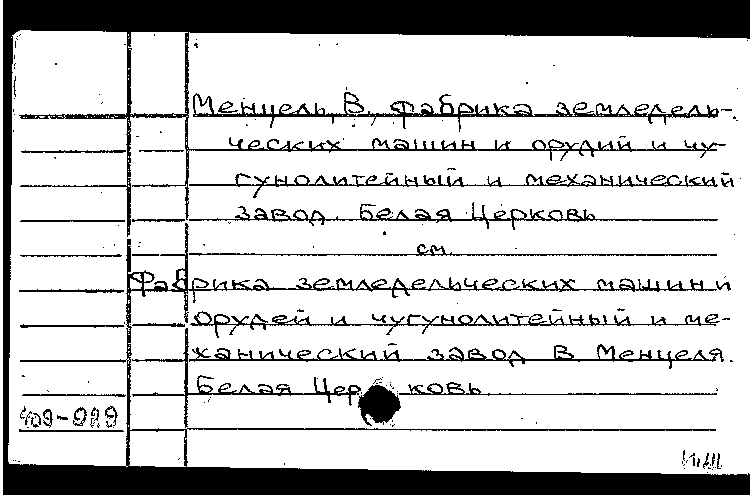 Менцель, В., фабрика земледель-
ческих машин и орудий и чу-
гунолитейный и механический
завод. Белая Церковь
см.
Фабрика земледельческих машин и
орудей и чугунолитейный и ме-
ханический завод В. Менцеля.
Белая Церковь